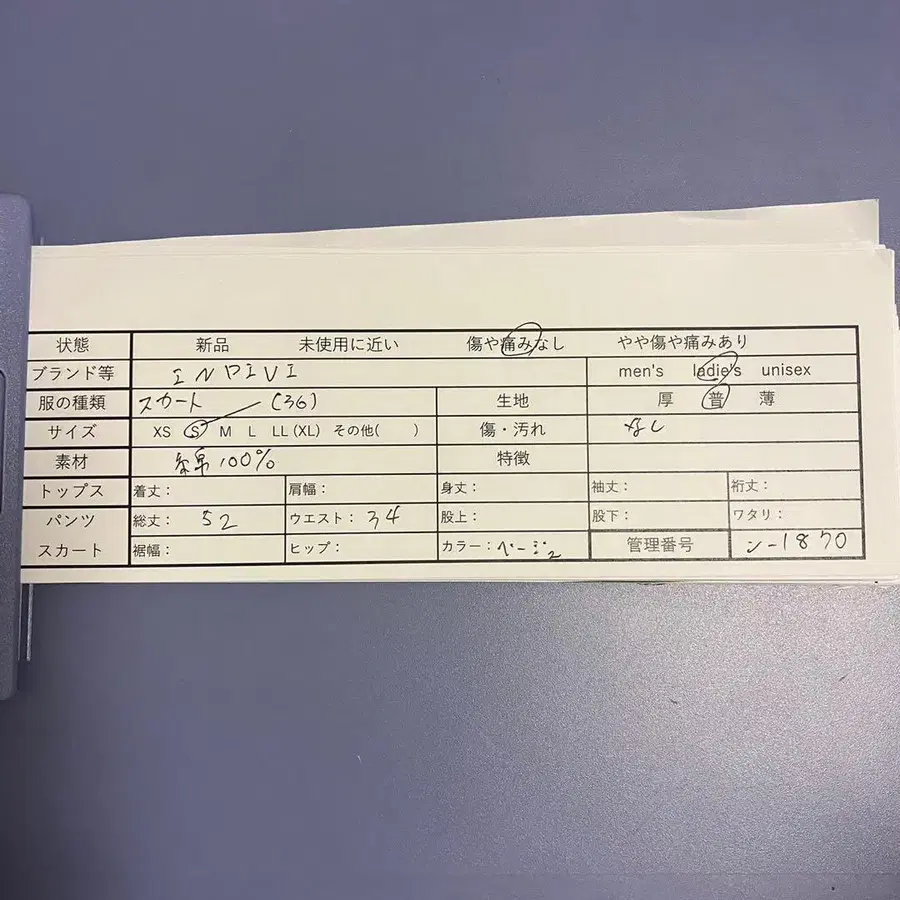 状態 新品 未使用に近い 傷や痛みなし やや傷や痛みあり
ブランド等 INDIVI men's ladie's unisex
服の種類 スカート (36) 生地 厚 普 薄
サイズ XS S M L LL (XL) その他( ) 傷・汚れ なし
素材 綿100% 特徴
トップス 着丈: 肩幅: 身丈: 袖丈: 裄丈:
パンツ 総丈: 52 ウエスト: 34 股上: 股下: ワタリ:
スカート 裾幅: ヒップ: カラー: ベージュ 管理番号 ン-1870